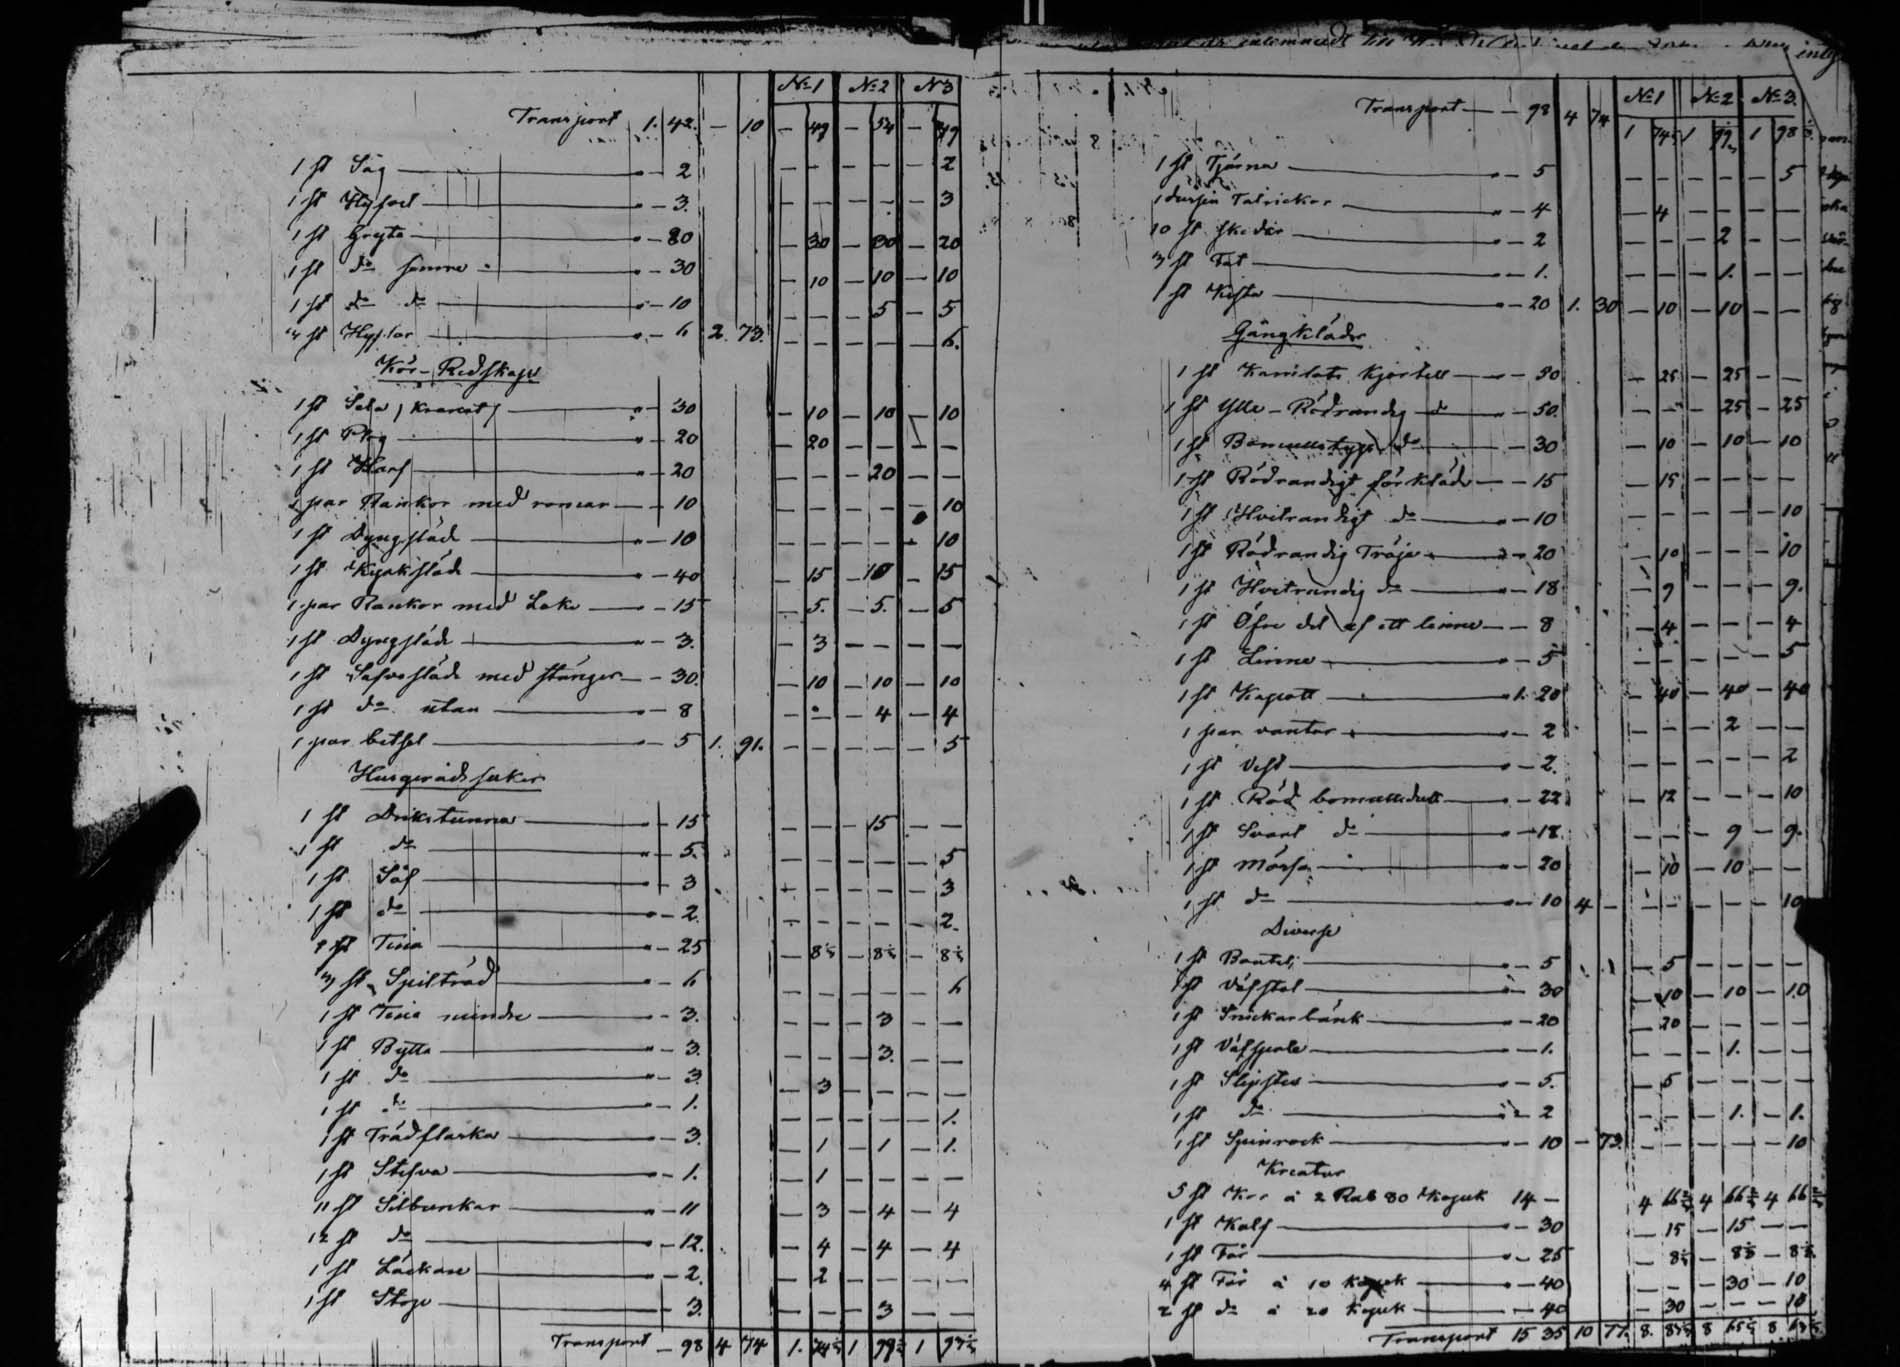 №1 №2 №3
Transport 1. 42. — 10 — 49 — 54 — 49
1 st Såg — 2 — — — — — 2
1 st Hyfvel — 3. — — — — — 3
1 st Gryta — 80 — 30 — 30 — 20
1 st do sämre — 30 — 10 — 10 — 10
1 st do do — 10 — — — 5 — 5
st Hyflar — 6 2. 73. — — — — — 6.
Kör-Redskap
1 st Sela — 30 — 10 — 10 — 10
1 st Plog — 20 — 20 — — — —
1 st Harf — 20 — — — 20 — —
1 par Rankor med — 10 — — — — — 10
1 st Dyngsläde — 10 — — — — — 10
1 st Kyrksläde — 40 — 15 — 10 — 15
1 par Rankor med Lake — 15 — 5. — 5. — 5
1 st Dyngsläde — 3. — 3 — — — —
1 st släde med stänger — 30. — 10 — 10 — 10
1 st do utan — 8 — — — 4 — 4
1 par betsel — 5 1. 91. — — — — — 5
Husgerådssaker
1 st Drikstunna — 15 — — — 15 — —
1 st do — 5. — — — — — 5
1 st Såf — 3 — — — — — 3
1 st do — 2. — — — — — 2.
st Tina — 25 — 8⅓ — 8⅓ — 8⅓
3 st Spilträd — 6 — — — — — 6
1 st Tina mindre — 3. — — — 3 — —
1 st Bytta — 3. — — — 3. — —
1 st do — 3 — 3 — — — —
1 st do — 1. — — — — — 1.
1 st Trädflaska — 3. — 1 — 1 — 1.
1 st Stefva — 1. — 1 — — — —
11 st Silbunkar — 11 — 3 — 4 — 4
12 st do — 12. — 4 — 4 — 4
1 st — 2. — 2 — — — —
1 st Stop — 3. — — — 3 — —
Transport — 98 4 74 1. 1 1
№1 №2 №3.
Transport — 98 4 74 1 1 1 98
1 st Tjärna — 5 — — — — — 5
1 dussin Talrickor — 4 — 4 — — — —
10 st skedar — 2 — — — 2 — —
3 st Fat — 1. — — — 1. — —
1 st Kista — 20 1. 30 — 10 — 10 — —
Gångkläder
1 st Kamlots Kjortell — 50 — 25 — 25 — —
1 st Ylle-Rödrandig do — 50. — — — 25 — 25
1 st Bomullstygs do — 30 — 10 — 10 — 10
1 st Rödrandigt förkläde — 15 — 15 — — — —
1 st Hvitrandigt do — 10 — — — — — 10
1 st Rödrandig Tröja — 20 — 10 — — — 10
1 st Hvitrandig do — 18 — 9 — — — 9.
1 st Öfre del af ett linne — 8 — 4 — — — 4
1 st Linne — 5 — — — — — 5
1 st Kapott — 1. 20 — 40 — 40 — 40
1 par vantar — 2 — — — 2 — —
1 st Vest — 2. — — — — — 2
1 st Röd bomullsduk — 22 — 12 — — — 10
1 st Svart do — 18. — — — 9 — 9.
1 st Mössa — 20 — 10 — 10 — —
1 st do — 10 4 — — — — — — 10
Diverse
1 st — 5 — 5 — — — —
1 st Väfstol — 30 — 10 — 10 — 10
1 st Snickarbänk — 20 — 20 — — — —
1 st Väfspole — 1. — — — 1. — —
1 st Slipsten — 5. — 5 — — — —
1 st do — 2 — — — 1. — 1.
1 st Spinrock — 10 — 73. — — — — — 10
Kreatur
5 st Kor à 2 Rub 80 Kopek 14 — 4 66⅔ 4 66⅔ 4 66⅔
1 st Kalf — 30 — 15 — 15 — —
1 st Får — 25 — 8⅓ — 8⅓ — 8⅓
4 st Får à 10 kopek — 40 — — — 30 — 10
2 st do à 20 kopek — 40 — 30 — — — 10
Transport 15 35 10 77. 8. 8 8